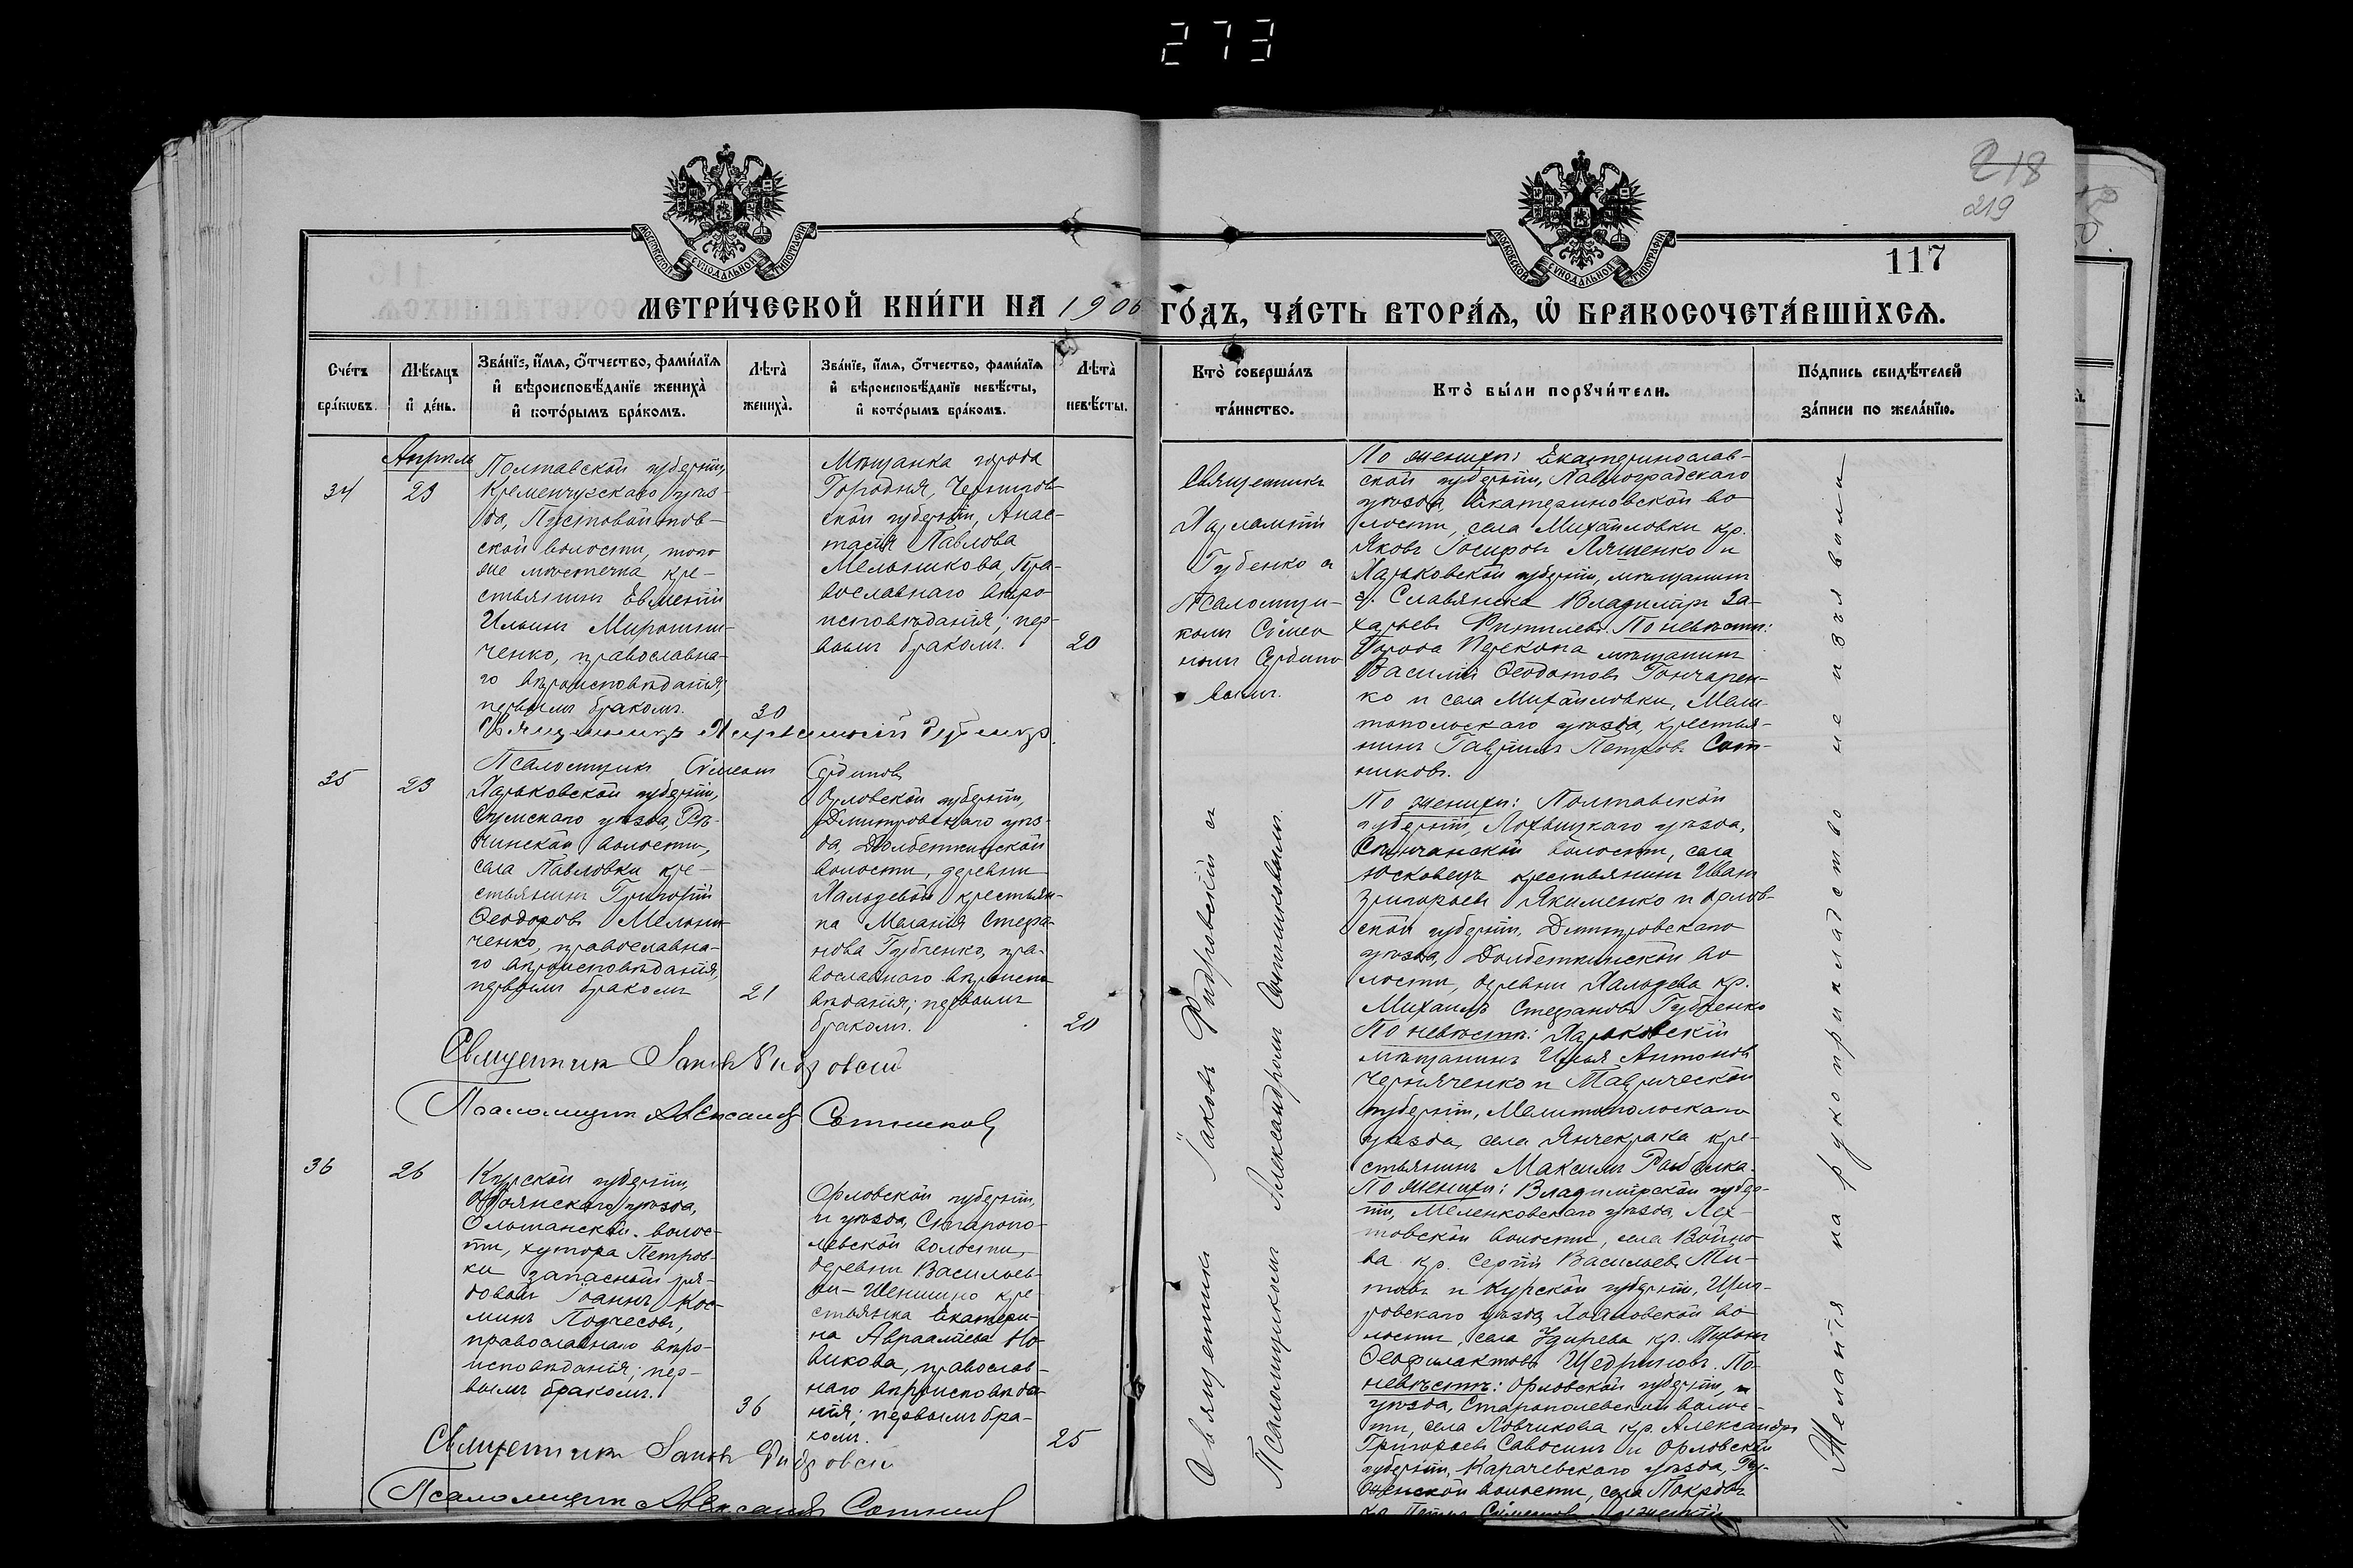 273
218
219
117
МОСКОВСКОЙ СѴНОДАЛЬНОЙ ТИПОГРАФІИ
МОСКОВСКОЙ СѴНОДАЛЬНОЙ ТИПОГРАФІИ
МЕТРИ́ЧЕСКОЙ КНИ́ГИ НА 1906 ГО́ДЪ, ЧА́СТЬ ВТОРА́Ѧ, Ѽ БРАКОСОЧЕТА́ВШИХСѦ.
Сче́тъ
бра́кѡвъ.
Мѣ́сѧцъ
и҆ де́нь.
Зва́нїе, и҆́мѧ, ѻ҆́тчество, фами́лїѧ
и҆ вѣроисповѣ́данїе жениха̀
и҆ кото́рымъ бра́комъ.
Лѣ́та̀
жениха̀.
Зва́нїе, и҆́мѧ, ѻ҆́тчество, фами́лїѧ
и҆ вѣроисповѣ́данїе невѣ́сты,
и҆ кото́рымъ бра́комъ.
Лѣ́та̀
невѣ́сты.
Кто̀ соверша́лъ
та́инство.
Кто̀ бы́ли порꙋчи́тели.
По́дпись свидѣ́телей
за́писи по жела́нїю.
Апрѣль
34
23
Полтавской губерніи,
Кременчугскаго уѣз-
да, Пустовойтов-
ской волости, того
же мѣстечка кре-
стьянинъ Евменій
Ильинъ Мирошни-
ченко, православна-
го вѣроисповѣданія;
первымъ бракомъ.
30
Мѣщанка города
Городня, Чернигов-
ской губерніи, Анас-
тасія Павлова
Мельникова, Пра-
вославнаго вѣро-
исповѣданія; пер-
вымъ бракомъ.
20
Священникъ
Харлампій
Губенко съ
Псаломщи-
комъ Сѵмео
номъ Сербино
вымъ.
По женихѣ: Екатеринослав-
ской губерніи, Павлоградскаго
уѣзда, Екатериновской во
лости, села Михайловки кр.
Яковъ Іосифовъ Ляшенко и
Харьковской губерніи, мѣщанинъ
г. Славянска Владиміръ За-
харьевъ По невѣстѣ:
Города Перекопа мѣщанинъ
Василій Ѳеодотовъ Гончарен-
ко и села Михайловки, Мели-
топольскаго уѣзда, крестья-
нинъ Гавріилъ Петровъ Сот-
никовъ.
Священникъ Харлампій Губенко.
Псаломщикъ Сѵмеонъ Сербиновъ
35
23
Харьковской губерніи,
Сумскаго уѣзда, Рѣ-
чинской волости,
села Павловки кре-
стьянинъ Григорій
Ѳеодоровъ Мельни-
ченко, православна-
го вѣроисповѣданія,
первымъ бракомъ
21
Орловской губерніи,
Дмитровскаго уѣз-
да, Долбенкинской
волости, деревни
Хальзевой крестьян-
ка Меланія Стефа-
нова Губченко, пра-
вославнаго вѣроиспо
вѣданія; первымъ
бракомъ.
20
Священникъ Іаковъ
Псаломщикомъ Александромъ Сотниковымъ
По женихѣ: Полтавской
губерніи, Лохвицкаго уѣзда,
волости, села
Юсковецъ крестьянинъ Иванъ
Григорьевъ Якименко и Орлов-
ской губерніи, Дмитровскаго
уѣзда, Долбенкинской во
лости, деревни Хальзева кр.
Михаилъ Стефановъ Губченко
По невѣстѣ: Харьковскій
мѣщанинъ Илья Антоновъ
Черняченко и Таврической
губерніи, Мелитопольскаго
уѣзда, села Янчекрака кре-
стьянинъ Максимъ
Священникъ Іаковъ
Псаломщикъ Александръ Сотниковъ
36
26
Курской губерніи,
Обоянскаго уѣзда,
Ольшанской волос-
ти, хутора Петров-
ки запасный ря-
довой Іоаннъ Кос-
минъ Подчесовъ,
православнаго вѣро-
исповѣданія; пер-
вымъ бракомъ.
36
Орловской губерніи,
и уѣзда, Старопо-
левской волости,
деревни Васильев-
ки-Шеншино кре
стьянка Екатери-
на Авраамiева Но-
викова, православ-
наго вѣроисповѣда-
нія; первымъ бра-
комъ.
25
По женихѣ: Владимірской губер-
ніи, Меленковскаго уѣзда, Лех-
товской волости, села Войно-
ва кр. Сергій Васильевъ Ти-
товъ и Курской губерніи, Щиг-
ровскаго уѣзда, волости, села кр. Тихонъ
Ѳеофилактовъ Щедриновъ. По
невѣстѣ: Орловской губерніи, и
уѣзда, Старополевской волос-
ти, села Ловчикова кр. Александръ
Григорьевъ Савосинъ и Орловской
губерніи, Карачевскаго уѣзда,
волости, села Покровъ
Желанія на рукоприкладство не изъявили
Священникъ Іаковъ
Псаломщикъ Александръ Сотниковъ